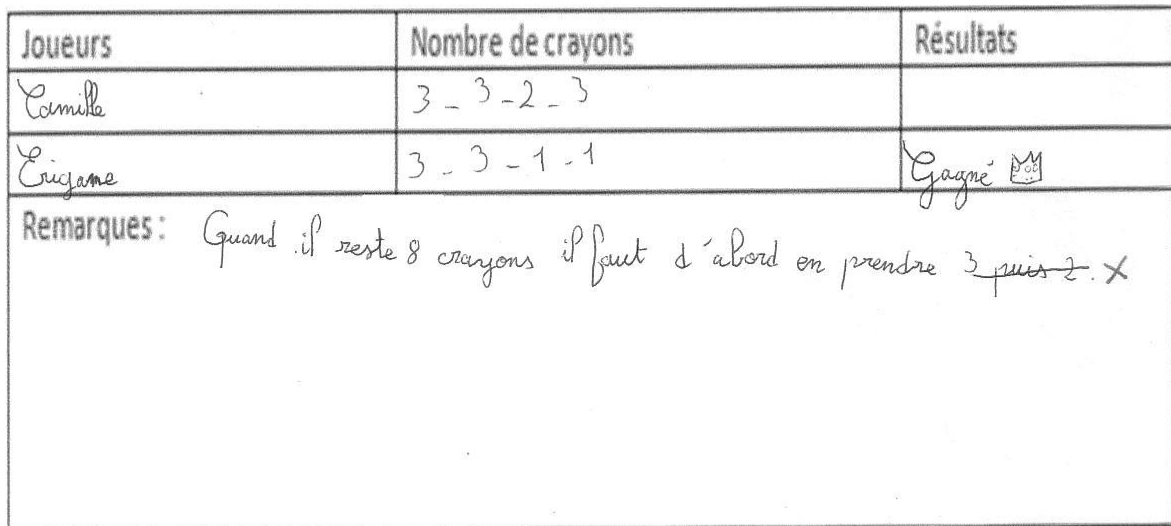 Joueurs Nombre de crayons Résultats
Camille 3 - 3 - 2 - 3
Erigame 3 - 3 - 1 - 1 Gagné
Remarques : Quand il reste 8 crayons il faut d'abord en prendre 3 puis 2. X